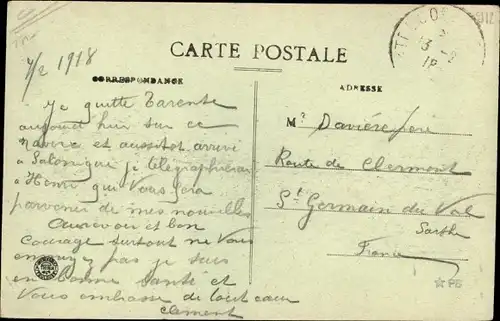 CARTE POSTALE
7/2 1918
CORRESPONDANCE
ADRESSE
Je quitte Tarente
aujourd hui sur ce
navire et aussitot arrivé
a Salonique je télégraphierai
a Henri qui vous fera
parvenir de mes nouvelles
Aurevoir et bon
courage surtout ne vous
ennuyez pas je suis
en bonne santé et
vous embrasse de tout cœur
Clement
Mr
Route de Clermont
St Germain du Val
Sarthe
France